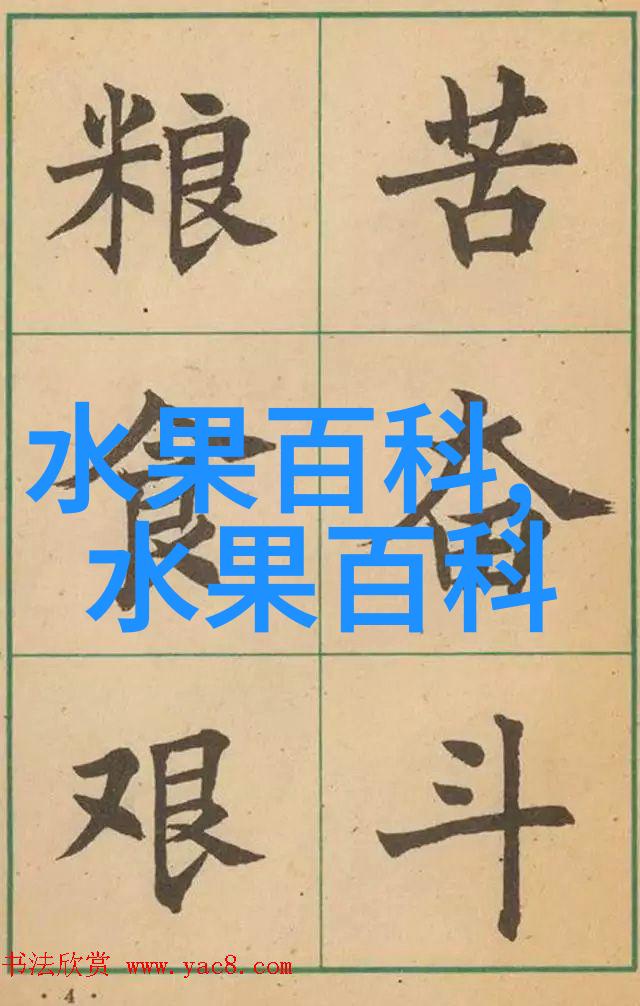 粮 苦
食 奋
艰 斗
水果百科,
水果百科
书法欣赏 www.yac8.com
· 4 ·